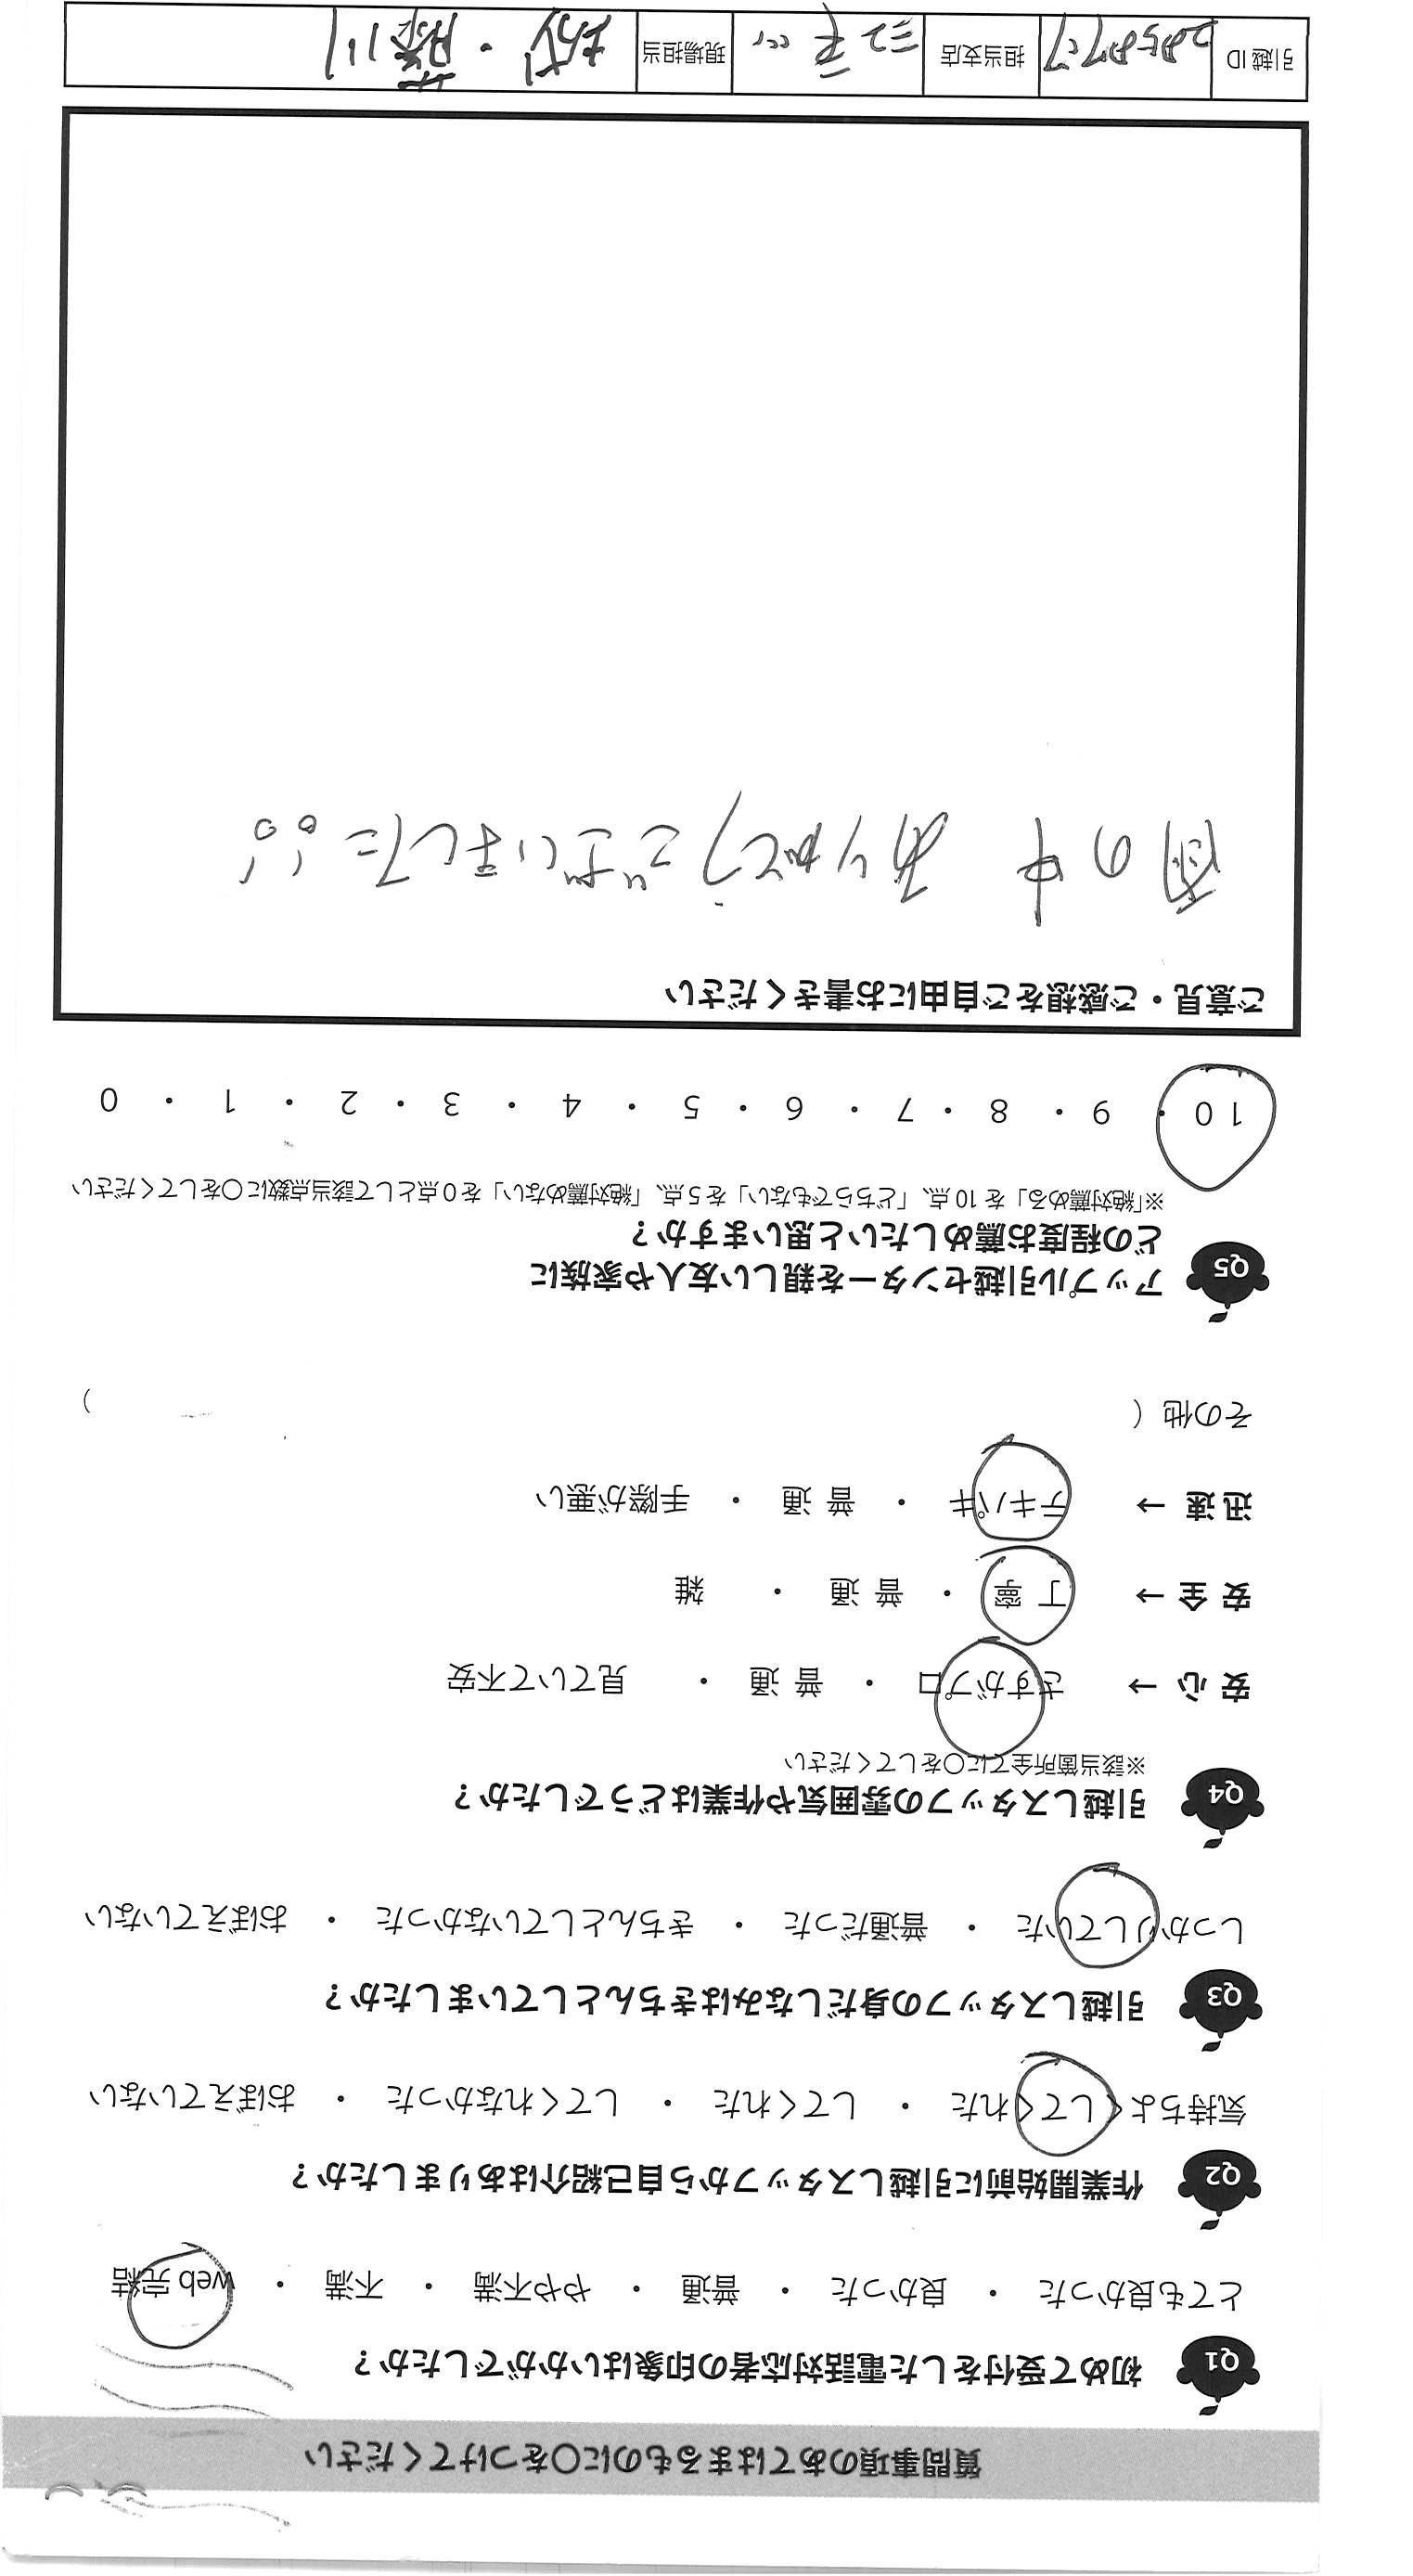 質問事項のあてはまるものに○をつけてください
Q1 初めて受付をした電話対応者の印象はいかがでしたか？
とても良かった ・ 良かった ・ 普通 ・ やや不満 ・ 不満 ・ web 完結
Q2 作業開始前に引越しスタッフから自己紹介はありましたか？
気持ちよくしてくれた ・ してくれた ・ してくれなかった ・ おぼえていない
Q3 引越しスタッフの身だしなみはきちんとしていましたか？
しっかりしていた ・ 普通だった ・ きちんとしていなかった ・ おぼえていない
Q4 引越しスタッフの雰囲気や作業はどうでしたか？
※該当箇所全てに○をしてください
安 心 → さすがプロ ・ 普 通 ・ 見ていて不安
安 全 → 丁 寧 ・ 普 通 ・ 雑
迅 速 → テキパキ ・ 普 通 ・ 手際が悪い
その他（ ）
Q5 アップル引越センターを親しい友人や家族に
どの程度お薦めしたいと思いますか？
※「絶対薦める」を 10 点、「どちらでもない」を 5 点、「絶対薦めない」を 0 点として該当点数に○をしてください
10 ・ 9 ・ 8 ・ 7 ・ 6 ・ 5 ・ 4 ・ 3 ・ 2 ・ 1 ・ 0
ご意見・ご感想をご自由にお書きください
雨の中 ありがとうございました!!
引越 ID 担当支店 現場担当 ・藤川